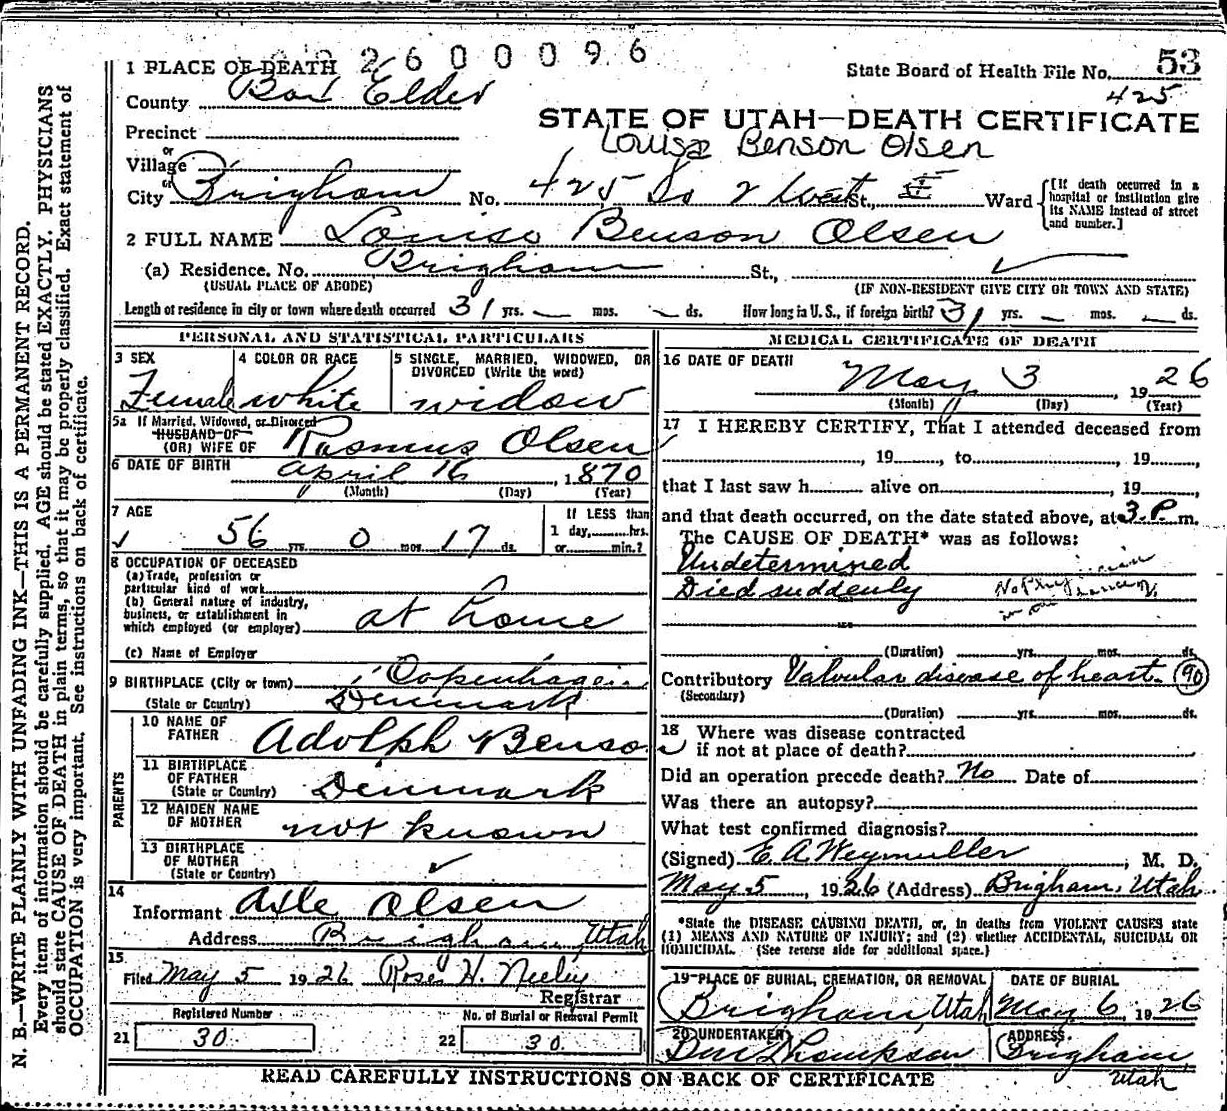 2600096
1 PLACE OF DEATH
State Board of Health File No. 53
County Box Elder
425
Precinct
STATE OF UTAH—DEATH CERTIFICATE
or
Louisa Benson Olsen
Village
or
City Brigham No. 425 So 2 West St., Ward
[If death occurred in a hospital or institution give its NAME instead of street and number.]
2 FULL NAME Louise Benson Olsen
(a) Residence. No. Brigham St.,
(USUAL PLACE OF ABODE)
(IF NON-RESIDENT GIVE CITY OR TOWN AND STATE)
Length of residence in city or town where death occurred 31 yrs. — mos. — ds. How long in U. S., if foreign birth? 31 yrs. — mos. — ds.
PERSONAL AND STATISTICAL PARTICULARS
3 SEX
Female
4 COLOR OR RACE
white
5 SINGLE, MARRIED, WIDOWED, OR
DIVORCED (Write the word)
widow
5a If Married, Widowed, or Divorced
HUSBAND OF
(OR) WIFE OF Rasmus Olsen
6 DATE OF BIRTH April 16, 1870
(Month) (Day) (Year)
7 AGE
56 yrs. 0 mos. 17 ds.
If LESS than
1 day, hrs.
or min.?
8 OCCUPATION OF DECEASED
(a) Trade, profession or
particular kind of work
(b) General nature of industry,
business, or establishment in
which employed (or employer) at home
(c) Name of Employer
9 BIRTHPLACE (City or town) Copenhagen
(State or Country) Denmark
PARENTS
10 NAME OF
FATHER Adolph Benson
11 BIRTHPLACE
OF FATHER
(State or Country) Denmark
12 MAIDEN NAME
OF MOTHER not known
13 BIRTHPLACE
OF MOTHER
(State or Country)
14
Informant Axle Olsen
Address Brigham, Utah
15
Filed May 5 1926 Rose H. Neeley
Registrar
Registered Number
21 30
No. of Burial or Removal Permit
22 30
MEDICAL CERTIFICATE OF DEATH
16 DATE OF DEATH
May 3, 1926
(Month) (Day) (Year)
17 I HEREBY CERTIFY, That I attended deceased from
, 19, to, 19,
that I last saw h alive on, 19,
and that death occurred, on the date stated above, at 3 P. m.
The CAUSE OF DEATH* was as follows:
Undetermined
Died suddenly
(Duration) yrs. mos. ds.
Contributory Valvular disease of heart. 90
(Secondary)
(Duration) yrs. mos. ds.
18 Where was disease contracted
if not at place of death?
Did an operation precede death? No Date of
Was there an autopsy?
What test confirmed diagnosis?
(Signed) E A Weymuller, M. D.
May 5, 1926 (Address) Brigham, Utah
*State the DISEASE CAUSING DEATH, or, in deaths from VIOLENT CAUSES state
(1) MEANS AND NATURE OF INJURY; and (2) whether ACCIDENTAL, SUICIDAL OR
HOMICIDAL. (See reverse side for additional space.)
19 PLACE OF BURIAL, CREMATION, OR REMOVAL
Brigham, Utah
DATE OF BURIAL
May 6, 1926
20 UNDERTAKER
Thompson
ADDRESS.
Brigham
Utah
READ CAREFULLY INSTRUCTIONS ON BACK OF CERTIFICATE
N. B.—WRITE PLAINLY WITH UNFADING INK—THIS IS A PERMANENT RECORD.
Every item of information should be carefully supplied. AGE should be stated EXACTLY. PHYSICIANS
should state CAUSE OF DEATH in plain terms, so that it may be properly classified. Exact statement of
OCCUPATION is very important. See instructions on back of certificate.